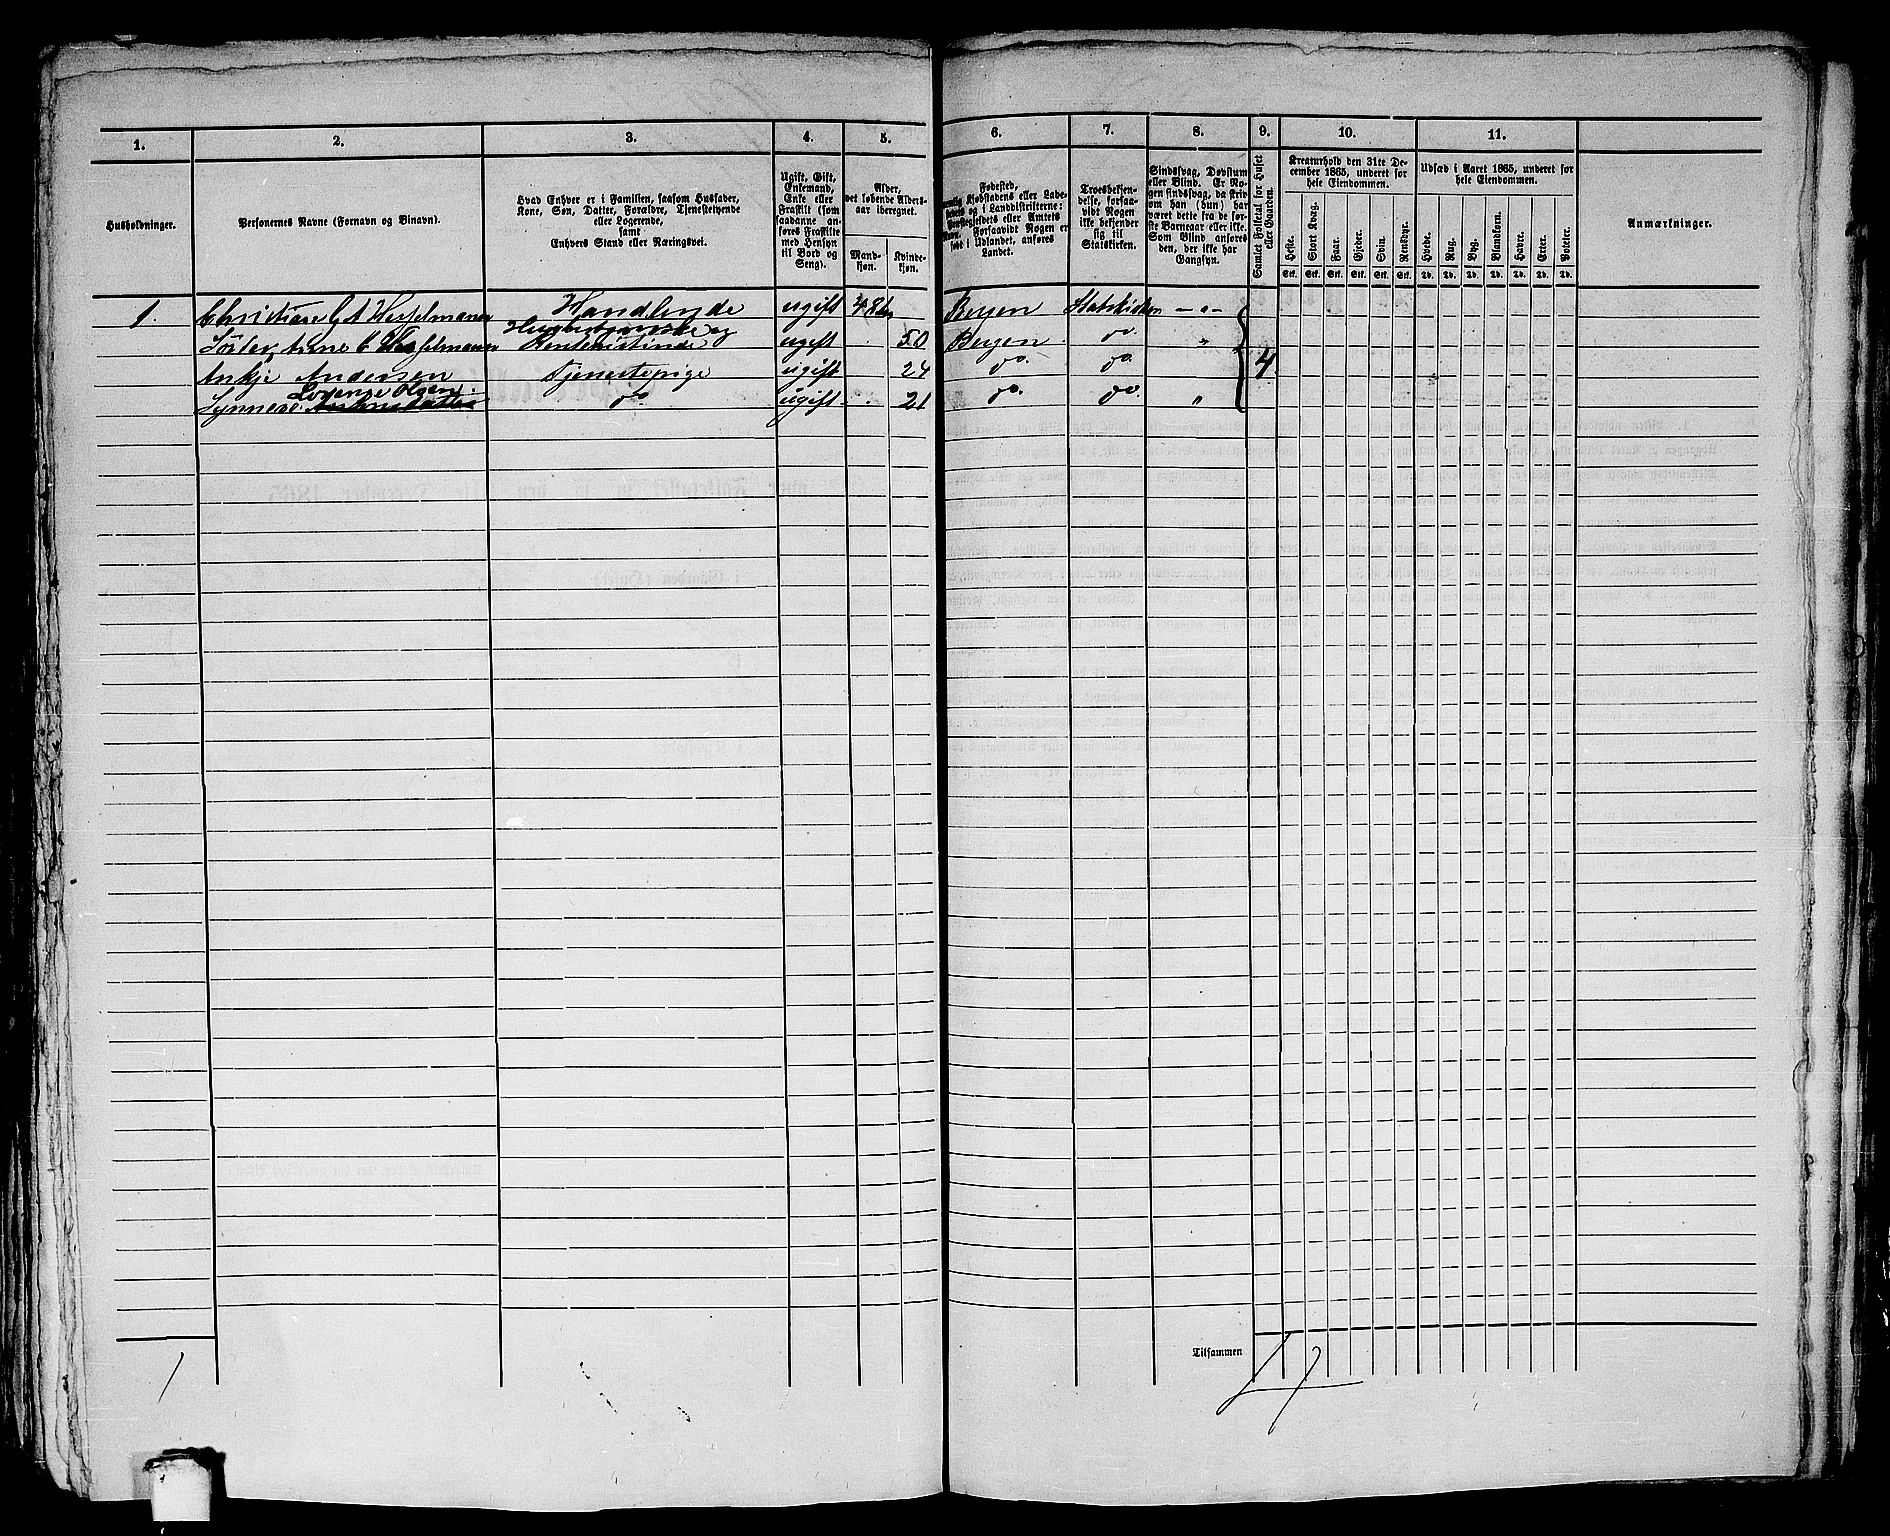 1.
2.
3.
4.
5.
6.
7.
8.
9.
10.
11.
Husholdninger.
Personernes Navne (Fornavn og Binavn).
Hvad Enhver er i Familien, saasom Husfader,
Kone, Søn, Datter, Forældre, Tjenestetyende
eller Logerende,
samt
Enhvers Stand eller Næringsvei.
Ugift, Gift,
Enkemand,
Enke eller
Fraskilt (som
saadanne an-
føres Fraskilte
med Hensyn
til Bord og
Seng).
Alder,
det løbende Alders-
aar iberegnet.
Mand-
kjøn.
Kvinde-
kjøn.
Fødested,
Kjøbstadens eller Lade-
og i Landdistrikterne:
Præstegjeldets eller Amtets
Forsaavidt Nogen er
født i Udlandet, anføres
Landet.
Troesbekjen-
delse, forsaa-
vidt Nogen
ikke bekjender
sig til
Statskirken.
Sindssvag, Døvstum
eller Blind. Er No-
gen sindssvag, da skriv
om han (hun) har
været dette fra de før-
ste Barneaar eller ikke.
Som Blind anføres
den, der ikke har
Gangsyn.
Samlet Folketal for Huset
eller Gaarden.
Kreaturhold den 31te De-
cember 1865, underet for
hele Eiendommen.
Heste.
Stort Kvæg.
Faar.
Gjeder.
Svin.
Rensdyr.
Stk. Stk. Stk. Stk. Stk. Stk.
Udsæd i Aaret 1865, underet for
hele Eiendommen.
Hvede.
Rug.
Byg.
Blandkorn.
Havre.
Erter.
Poteter.
Td. Td. Td. Td. Td. Td. Td.
Anmærkninger.
1. Handlende ugift 48 Bergen Statskirken - " -
og
Anne C Hesselmann Rentenistinde ugift . 50 Bergen do "
Ankje Andersen Tjenestepige ugift . 24 do do 4.
Lovense Olsen.
do ugift . 21 do do "
Tilsammen
4
1